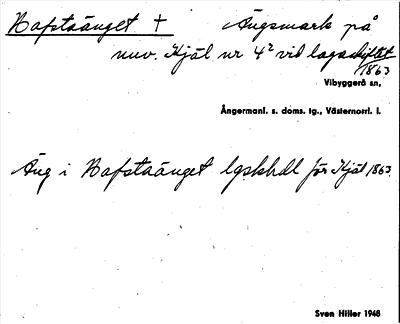 Bafstaänget † Ängsmark på
nuv. Kjäl nr 4² vid lagaskiftet
1863
Vibyggerå sn,
Ångermanl. s. doms. tg., Västernorrl. l.
Äng i Bafstaänget lgskhdl för Kjäl 1863.
Sven Hiller 1948